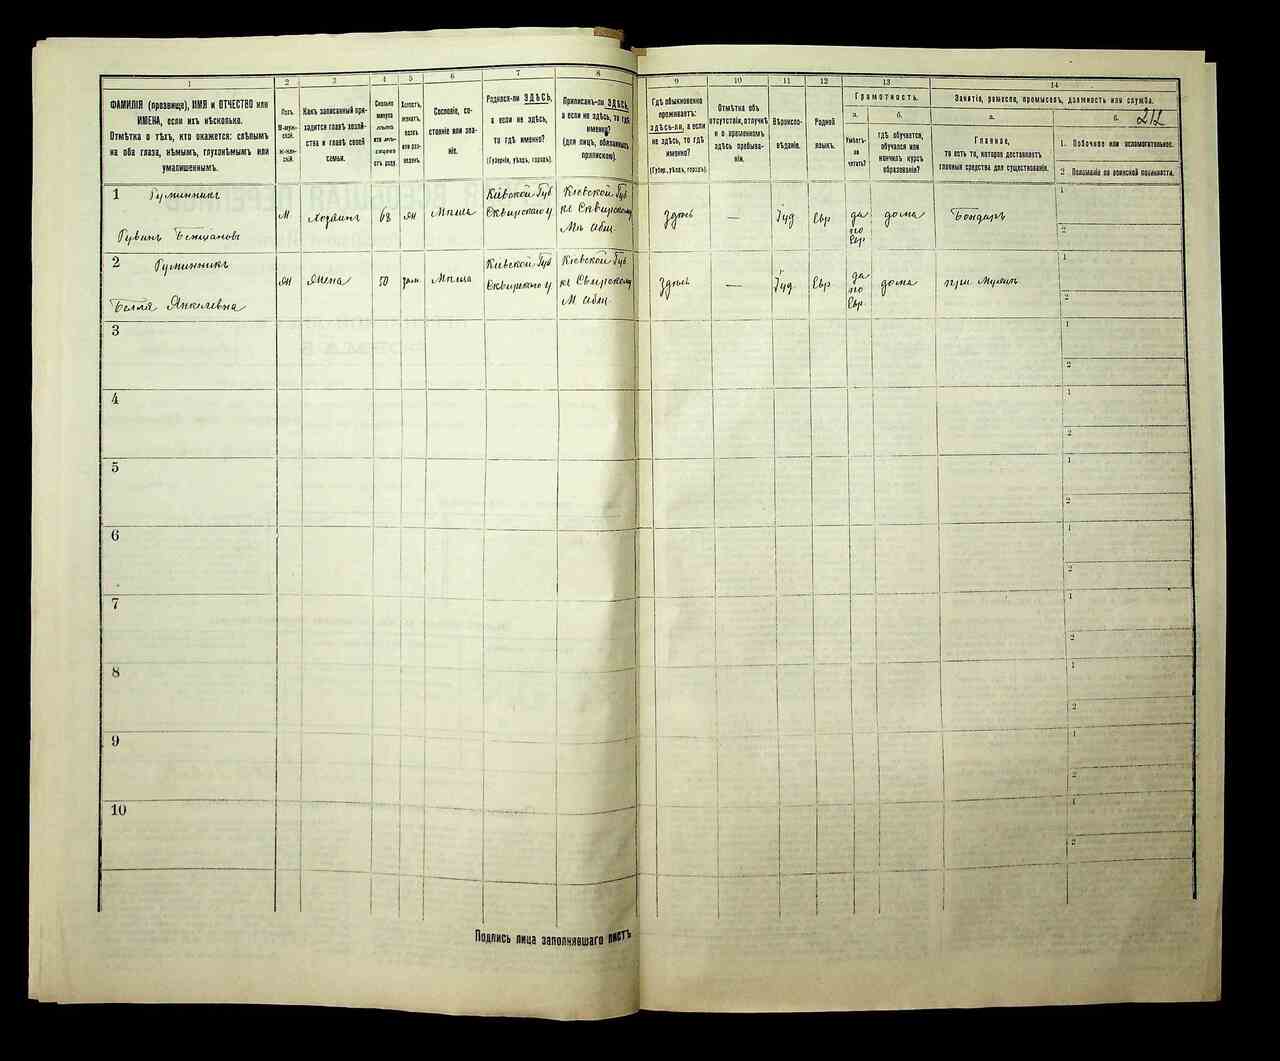 1
2
3
4
5
6
7
8
9
10
11
12
13
14
ФАМИЛІЯ (прозвище), ИМЯ и ОТЧЕСТВО или
ИМЕНА, если ихъ нѣсколько.
Отмѣтка о тѣхъ, кто окажется: слѣпымъ
на оба глаза, нѣмымъ, глухонѣмымъ или
умалишеннымъ.
Полъ.
М-муж-
ской.
Ж-жен-
скій.
Какъ записанный при-
ходится главѣ хозяй-
ства и главѣ своей
семьи.
Сколько
минуло
лѣтъ
Холостъ,
женатъ,
вдовъ
Сословіе, со-
стояніе или зва-
ніе.
Родился-ли ЗДѢСЬ,
а если не здѣсь,
то гдѣ именно?
(Губернія, уѣздъ, городъ).
Приписанъ-ли ЗДѢСЬ,
а если не здѣсь, то гдѣ
именно?
(для лицъ, обязанныхъ
припискою).
Гдѣ обыкновенно
проживаетъ:
здѣсь-ли, а если
не здѣсь, то гдѣ
именно?
(Губер., уѣздъ, городъ).
Отмѣтка объ
отсутствіи, отлучкѣ
и о временномъ
здѣсь пребыва-
ніи.
Вѣроиспо-
вѣданіе.
Родной
языкъ.
Грамотность.
а.
б.
Умѣетъ-
ли
читать?
гдѣ обучается,
обучался или
кончилъ курсъ
образованія?
Занятія, ремесло, промыселъ, должность или служба.
а.
б.
212
Главное,
то есть то, которое доставляетъ
главныя средства для существованія.
1. Побочное или вспомогательное.
2. Положеніе по воинской повинности.
1
Гуминникъ
Рувинъ
М
Хозяинъ
68
жн
Кіевской Губ
Сквирскаго у
Кіевской Губ
Сквирскому
Здѣсь
—
Іуд
Евр
да
по
Евр
дома
Бондарь
1
2
2
Гуминникъ
Бейля Янкелевна
жн
Жена
50
зам
Кіевской Губ
Сквирскаго у
Кіевской Губ
М
Здѣсь
—
Іуд
Евр
да
по
Евр
дома
при Мужѣ
1
2
3
1
2
4
1
2
5
1
2
6
1
2
7
1
2
8
1
2
9
1
2
10
1
2
Подпись лица заполнявшаго листъ